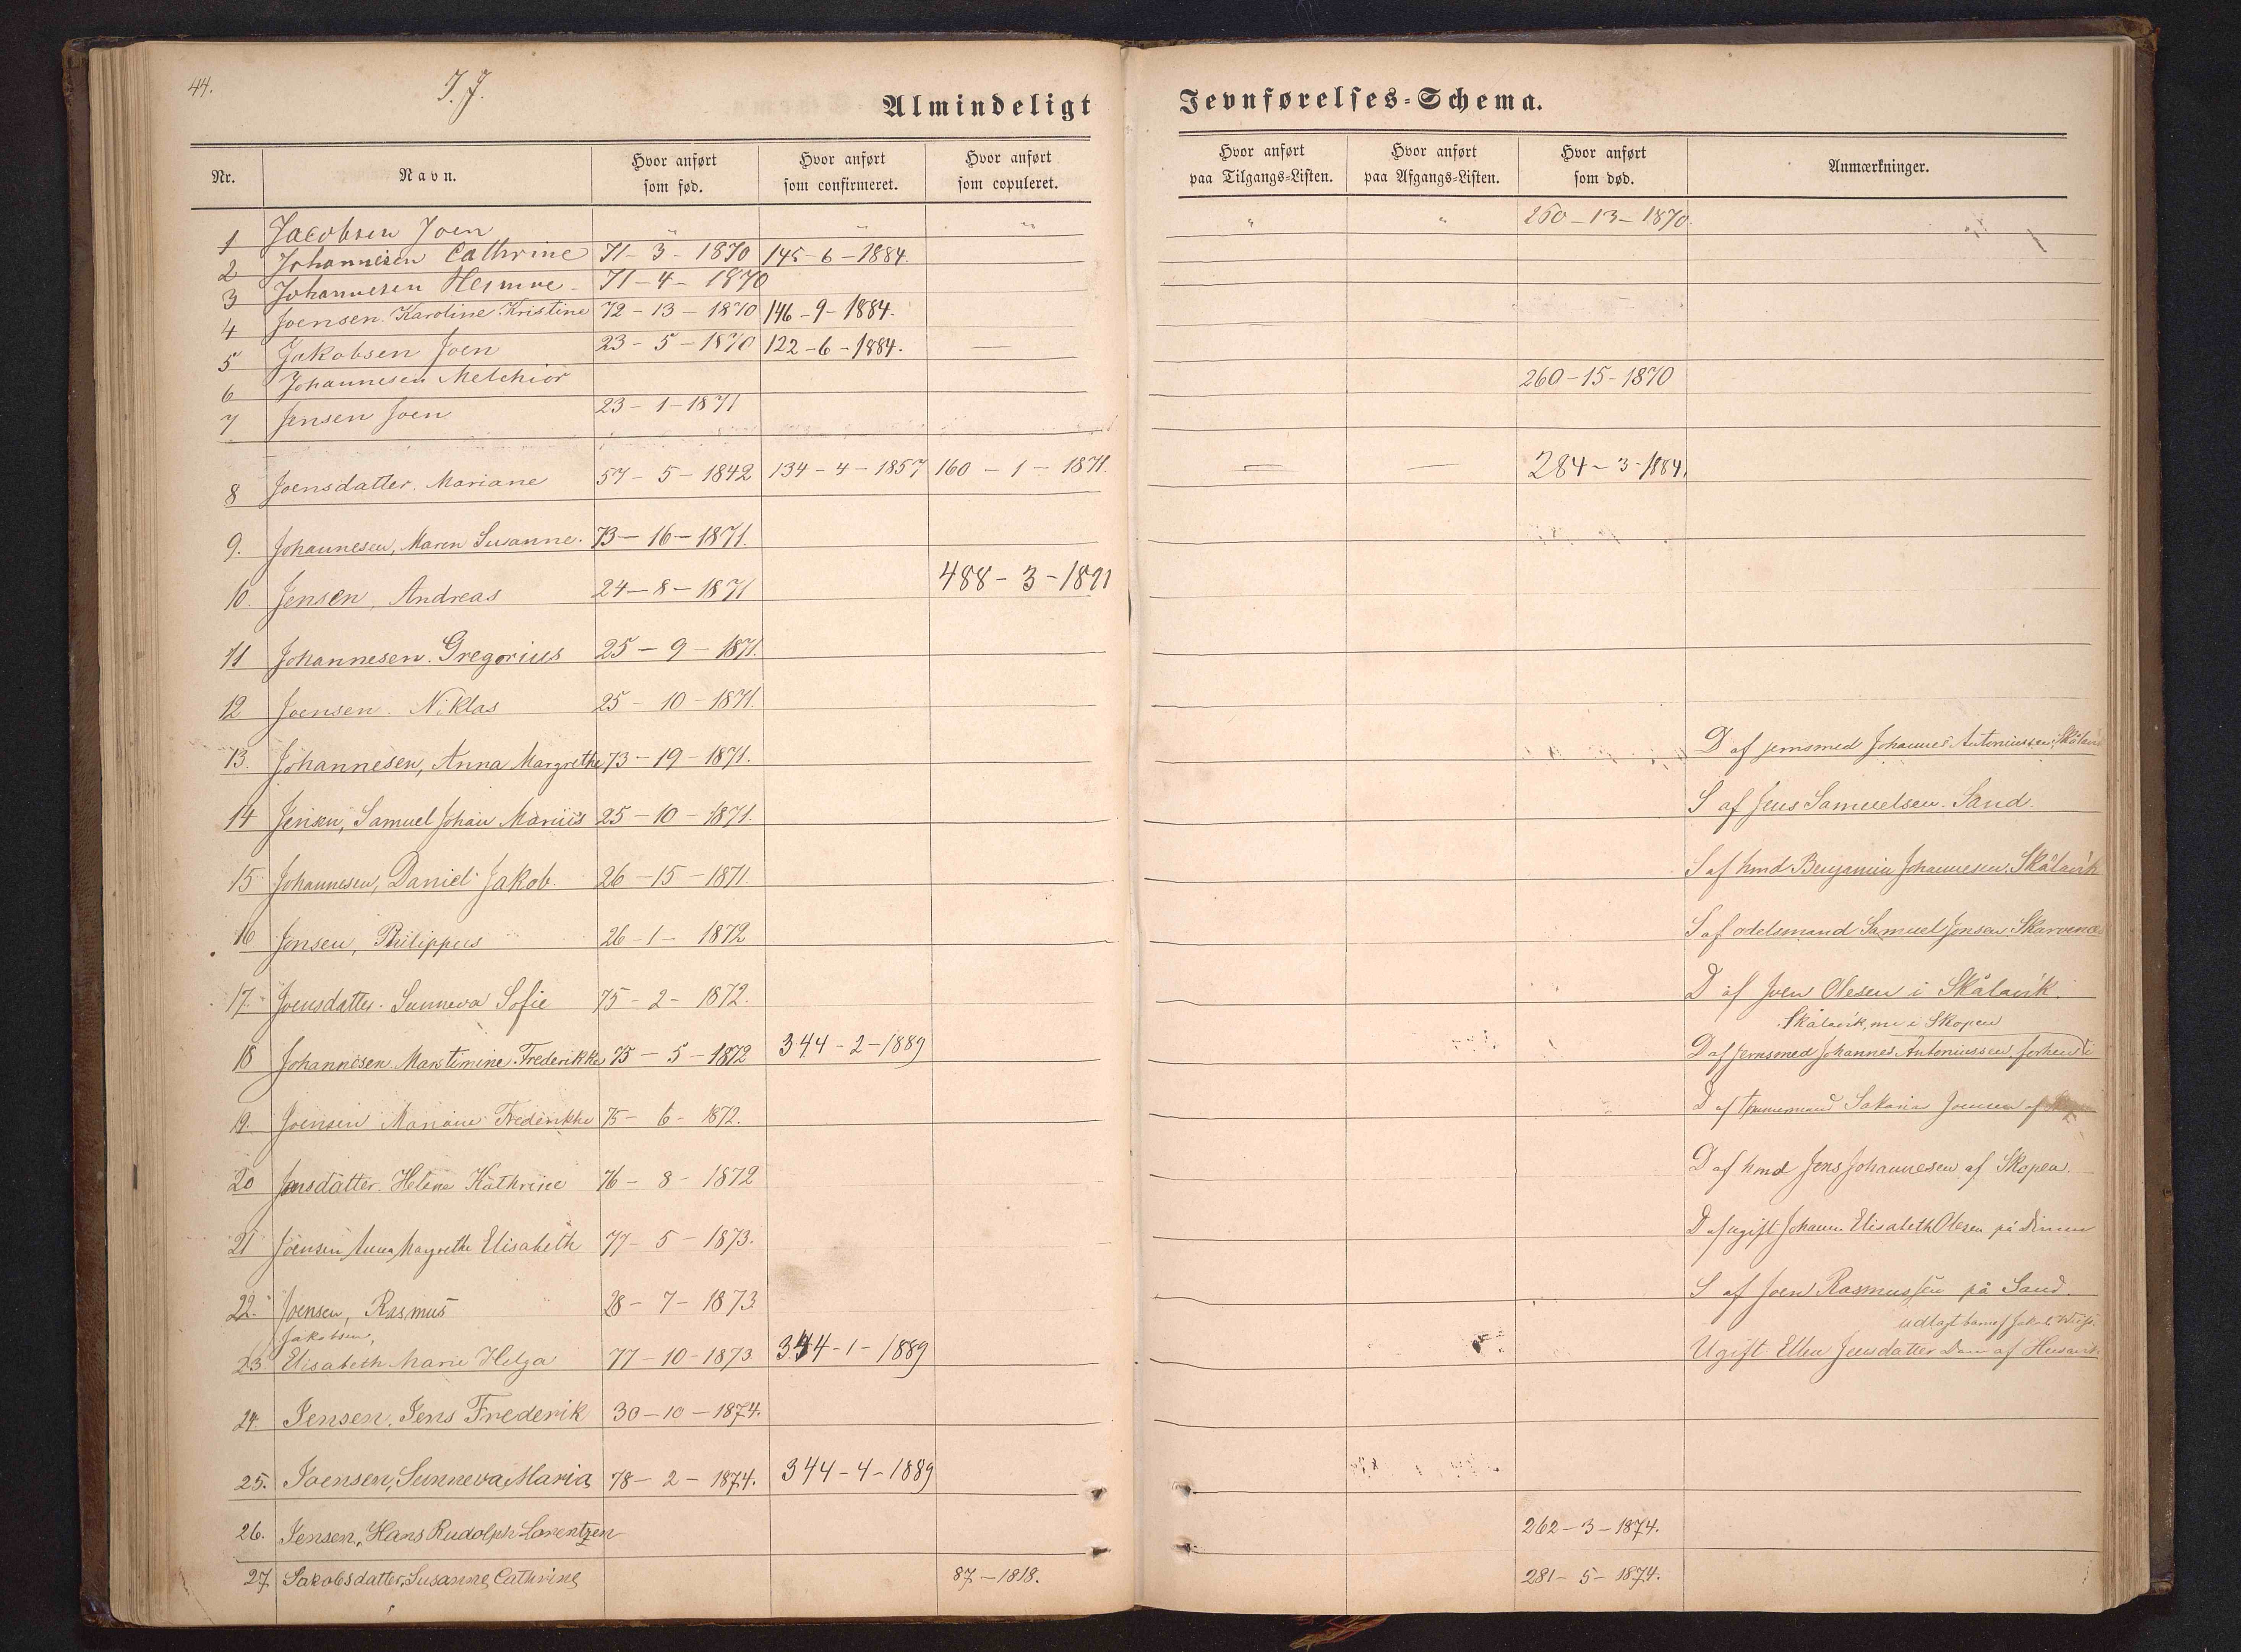 44.
J. J.
Almindeligt Jevnførelses-Schema.
Nr. Navn. Hvor anført som fød. Hvor anført som confirmeret. Hvor anført som copuleret. Hvor anført paa Tilgangs-Listen. Hvor anført paa Afgangs-Listen. Hvor anført som død. Anmærkninger.
1 Jacobsen Joen " " " " " 260-13-1870.
2 Johannesen Cathrine 71-3-1870 145-6-1884.
3 Johannesen 71-4-1870
4 Joensen Karoline Kristine 72-13-1870 146-9-1884.
5 Jakobsen Joen 23-5-1870 122-6-1884. —
6 Johannesen Melchior 260-15-1870
7 Jensen Joen 23-1-1871
8 Joensdatter. Mariane 57-5-1842 134-4-1857 160-1-1871. — — 284-3-1884.
9. Johannesen, Maren Susanne. 73-16-1871.
10. Jensen, Andreas 24-8-1871 488-3-1891
11 Johannesen. Gregorius 25-9-1871.
12 Joensen. Niklas 25-10-1871.
13. Johannesen, Anna Margrethe 73-19-1871. D af jernsmed Johannes Antoniussen, Skålavik
14 Jensen, Samuel Johan Marius 25-10-1871. S af Jens Samuelsen. Sand.
15 Johannesen, Daniel Jakob. 26-15-1871. S af hmd Benjamin Johannesen, Skålavik
16 Jonsen, Philippus 26-1-1872 S af odelsmand Samuel Jonsen. Skarvenæs
17. Joensdatter. Sunneva Sofie 75-2-1872. D af Joen Olesen i Skålavik.
Skålavik, nu i Skopen
18 Johannesen Frederikke 75-5-1872 344-2-1889 D af jernsmed Johannes Antoniussen, forhen i
19. Joensen Mariane Frederikke 75-6-1872. D af tømmermand Sakaria Joensen af
20 Jensdatter. Helene Kathrine 76-8-1872 D af hmd Jens Johannesen af Skopen.
21 Joensen Anna Margrethe Elisabeth 77-5-1873. D af ugift Elisabeth Olesen på
22. Joensen, Rasmus 28-7-1873 S af Joen Rasmussen på Sand.
Jakobsen, udlagt barnef. Jakob
23 Elisabeth Marie Helga 77-10-1873 344-1-1889 Ugift Ellen Jensdatter af Husavik
24. Jensen. Jens Frederik 30-10-1874.
25. Joensen, Sunneva Maria 78-2-1874. 344-4-1889
26. Jensen, Hans Rudolph Lorentzen 262-3-1874.
27 Jakobsdatter, Susanne Cathrine 87-1818. 281-5-1874.